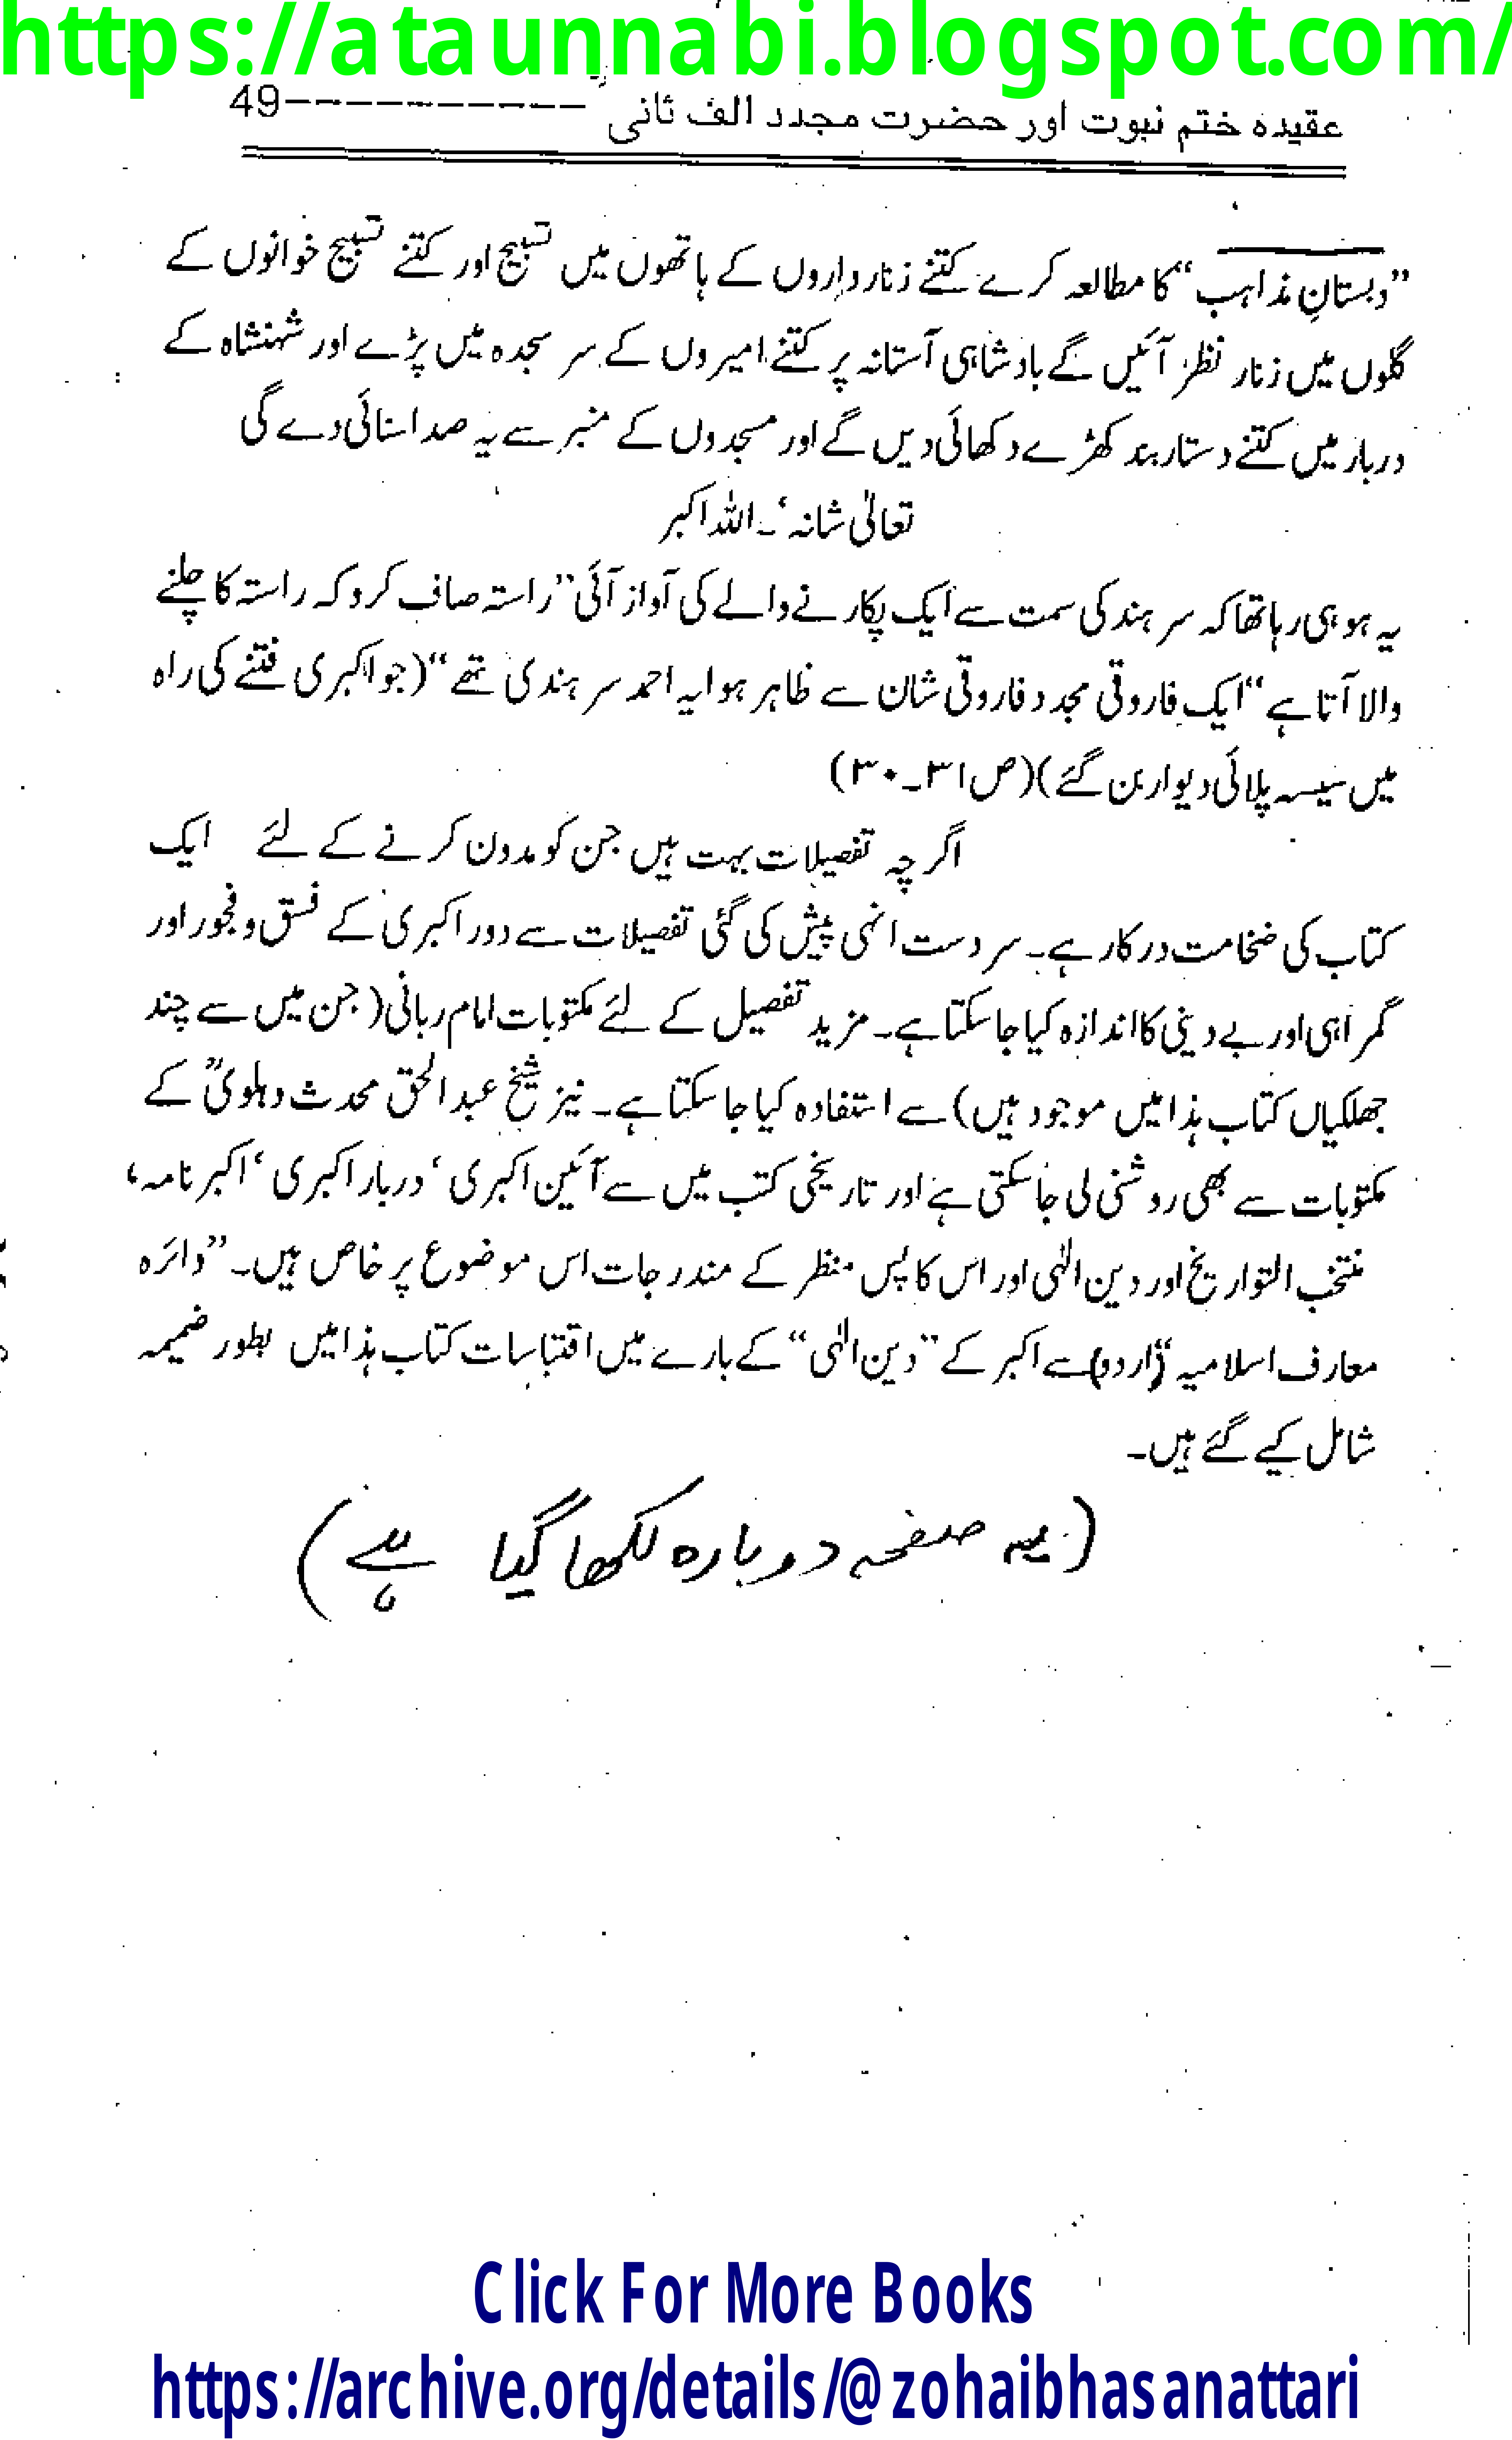 https://ataunnabi.blogspot.com/
عقیدہ ختم نبوت اور حضرت مجدد الف ثانی ----------49
”دبستانِ مذاہب“ کا مطالعہ کرے کتنے زنار داروں کے ہاتھوں میں تسبیح اور کتنے تسبیح خوانوں کے
گلوں میں زنار نظر آئیں گے بادشاہی آستانہ پر کتنے امیروں کے سر سجدہ میں پڑے اور شہنشاہ کے
دربار میں کتنے دستار بند کھڑے دکھائی دیں گے اور مسجدوں کے منبر سے یہ صدا سنائی دے گی
تعالیٰ شانہ‘۔ اللہ اکبر
یہ ہو ہی رہا تھا کہ سرہند کی سمت سے ایک پکارنے والے کی آواز آئی ”راستہ صاف کرو کہ راستہ کا چلنے
والا آتا ہے“ ایک فاروقی مجدد فاروقی شان سے ظاہر ہوا یہ احمد سرہندی تھے“ (جو اکبری فتنے کی راہ
میں سیسہ پلائی دیوار بن گئے) (ص ۳۱۔۳۰)
اگرچہ تفصیلات بہت ہیں جن کو مدون کرنے کے لئے ایک
کتاب کی ضخامت درکار ہے۔ سردست انہی پیش کی گئی تفصیلات سے دور اکبری کے فسق و فجور اور
گمراہی اور بے دینی کا اندازہ کیا جا سکتا ہے۔ مزید تفصیل کے لئے مکتوبات امام ربانی (جن میں سے چند
جھلکیاں کتاب ہذا میں موجود ہیں) سے استفادہ کیا جا سکتا ہے۔ نیز شیخ عبدالحق محدث دہلویؒ کے
مکتوبات سے بھی روشنی لی جا سکتی ہے اور تاریخی کتب میں سے آئین اکبری‘ دربار اکبری‘ اکبر نامہ،
منتخب التواریخ اور دین الٰہی اور اس کا پس منظر کے مندرجات اس موضوع پر خاص ہیں۔ ”دائرہ
معارف اسلامیہ“ (اردو) سے اکبر کے ”دین الٰہی“ کے بارے میں اقتباسات کتاب ہذا میں بطور ضمیمہ
شامل کیے گئے ہیں۔
(یہ صفحہ دوبارہ لکھا گیا ہے)
Click For More Books
https://archive.org/details/@zohaibhasanattari